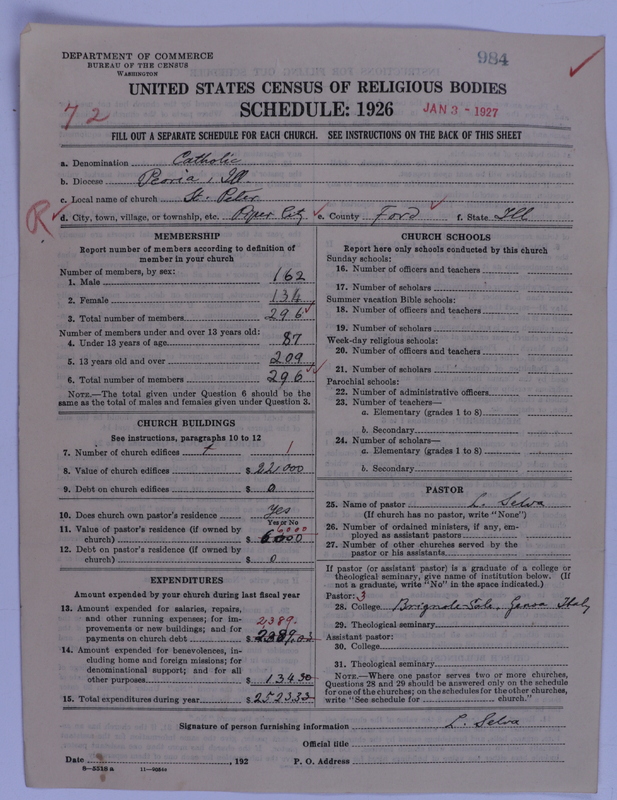 DEPARTMENT OF COMMERCE
BUREAU OF THE CENSUS
WASHINGTON
984
UNITED STATES CENSUS OF RELIGIOUS BODIES
72
SCHEDULE: 1926
JAN 3 - 1927
FILL OUT A SEPARATE SCHEDULE FOR EACH CHURCH. SEE INSTRUCTIONS ON THE BACK OF THIS SHEET
a. Denomination Catholic
b. Diocese Peoria, Ill
c. Local name of church St. Peter
R d. City, town, village, or township, etc. Piper City e. County Ford f. State Ill
MEMBERSHIP
Report number of members according to definition of
member in your church
Number of members, by sex:
1. Male 162
2. Female 134
3. Total number of members 296
Number of members under and over 13 years old:
4. Under 13 years of age 87
5. 13 years old and over 209
6. Total number of members 296
NOTE.—The total given under Question 6 should be the
same as the total of males and females given under Question 3.
CHURCH BUILDINGS
See instructions, paragraphs 10 to 12
7. Number of church edifices 1
8. Value of church edifices $ 22,000
9. Debt on church edifices $ 0
10. Does church own pastor's residence Yes
Yes or No
11. Value of pastor's residence (if owned by 6,000
church) $ 6000
12. Debt on pastor's residence (if owned by
church) $ 0
EXPENDITURES
Amount expended by your church during last fiscal year
13. Amount expended for salaries, repairs,
and other running expenses; for im- 2389.
provements or new buildings; and for
payments on church debt $ 2389.03
14. Amount expended for benevolences, in-
cluding home and foreign missions; for
denominational support; and for all
other purposes $ 134.30
15. Total expenditures during year $ 2523.33
CHURCH SCHOOLS
Report here only schools conducted by this church
Sunday schools:
16. Number of officers and teachers
17. Number of scholars
Summer vacation Bible schools:
18. Number of officers and teachers
19. Number of scholars
Week-day religious schools:
20. Number of officers and teachers
21. Number of scholars
Parochial schools:
22. Number of administrative officers
23. Number of teachers—
a. Elementary (grades 1 to 8)
b. Secondary
24. Number of scholars—
a. Elementary (grades 1 to 8)
b. Secondary
PASTOR
25. Name of pastor L. Selva
(If church has no pastor, write "None")
26. Number of ordained ministers, if any, em-
ployed as assistant pastors
27. Number of other churches served by the
pastor or his assistants
If pastor (or assistant pastor) is a graduate of a college or
theological seminary, give name of institution below. (If
not a graduate, write "No" in the space indicated.)
Pastor: 3
28. College Brignole-Sale, Genoa Italy
29. Theological seminary
Assistant pastor:
30. College
31. Theological seminary
NOTE.—Where one pastor serves two or more churches,
Questions 28 and 29 should be answered only on the schedule
for one of the churches; on the schedules for the other churches,
write "See schedule for church."
Signature of person furnishing information L. Selva
Official title
Date , 192 P. O. Address
8—5518a 11—9054